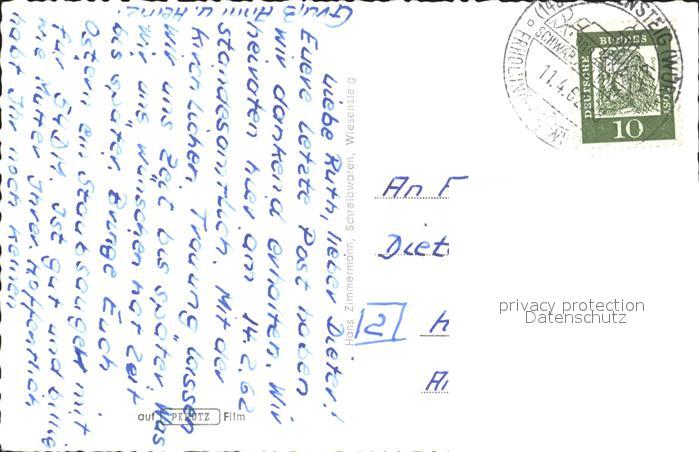 Gruß Anni u. Heinz
Liebe Ruth, lieber Dieter!
Euere letzte Post haben
wir dankend erhalten. Wir
heiraten hier am 14.2.62
standesamtlich. Mit der
kirchlichen Trauung lassen
wir uns Zeit bis später. Was
wir uns wünschen hat Zeit
bis später. Bringe Euch
Ostern ein Staubsauger mit
für 54 DM. Ist gut und billig
wie Mutter Ihrer. Hoffentlich
habt Ihr noch keinen
Hans Zimmermann, Schreibwaren, Wiesensteig
auf PERUTZ Film
ENSTEIG (WÜR
11.4.6
DEUTSCHE
BUNDES
POST
10
An F
Diet
2
privacy protection
Datenschutz